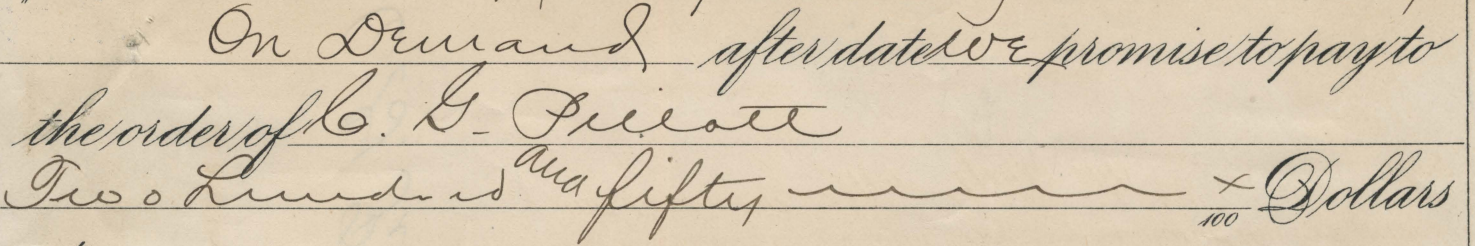 On Demand after date we promise to pay to
the order of C. G. Pillott
Two hundred and fifty x/100 Dollars